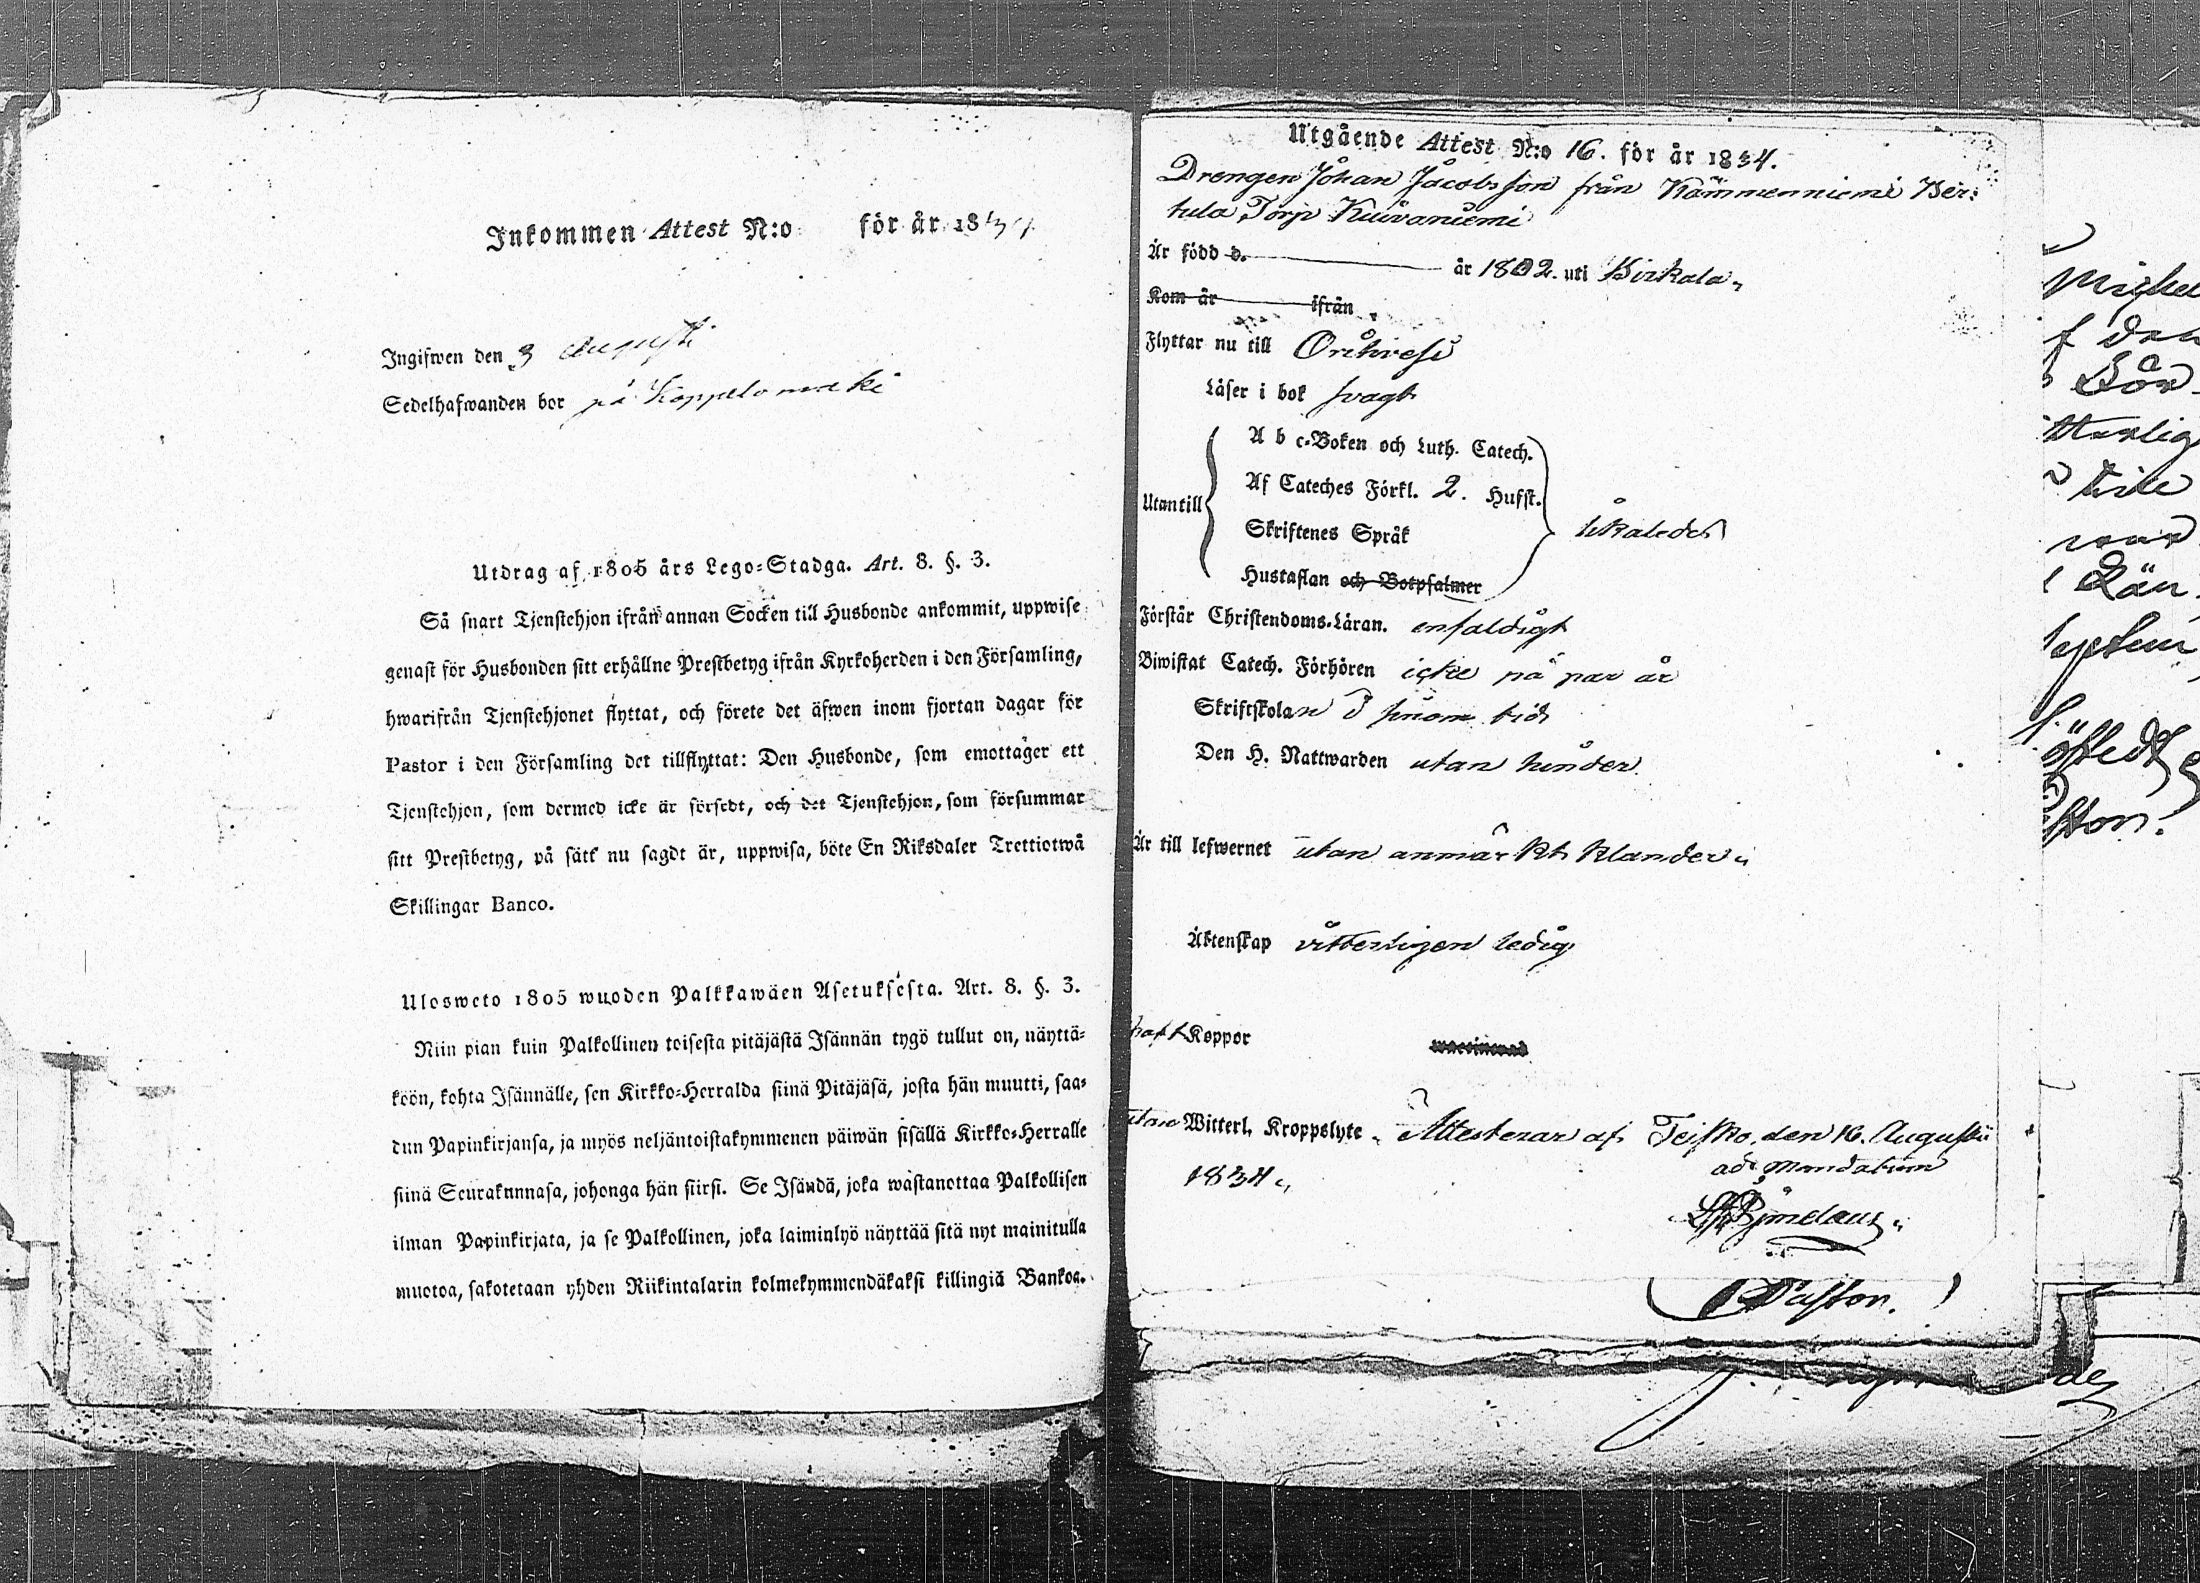 Inkommen Attest N:o för år 1834
Ingifwen den 3 Augusti
Sedelhafwanden bor på Koppelomäki
Utdrag af 1805 års Lego-Stadga. Art. 8. §. 3.
Så snart Tjenstehjon ifrån annan Socken till Husbonde ankommit, uppwise
genast för Husbonden sitt erhållne Prestbetyg ifrån Kyrkoherden i den Församling,
hwarifrån Tjenstehjonet flyttat, och förete det äfwen inom fjortan dagar för
Pastor i den Församling det tillflyttat: Den Husbonde, som emottager ett
Tjenstehjon, som dermed icke är försedt, och det Tjenstehjon, som försummar
sitt Prestbetyg, på sätt nu sagdt är, uppwisa, böte En Riksdaler Trettiotwå
Skillingar Banco.
Ulosweto 1805 wuoden Palkkawäen Asetuksesta. Art. 8. §. 3.
Niin pian kuin Palkollinen toisesta pitäjästä Isännän tygö tullut on, näyttä-
köön, kohta Isännälle, sen Kirkko-Herralda siinä Pitäjäsä, josta hän muutti, saa-
dun Papinkirjansa, ja myös neljäntoistakymmenen päiwän sisällä Kirkko-Herralle
siinä Seurakunnasa, johonga hän siirsi. Se Isändä, joka wastanottaa Palkollisen
ilman Papinkirjata, ja se Palkollinen, joka laiminlyö näyttää sitä nyt mainitulla
muotoa, sakotetaan yhden Riikintalarin kolmekymmendäkaksi killingiä Bankoa.
Utgående Attest N:o 16. för år 1834.
Drengen Johan Jacobsson från Kämmenniemi Ber-
tula Torp Kuivaniemi
Är född d. år 1802. uti Birkala
Kom år ifrån
Flyttar nu till Orihvesi
Läser i bok svagt
A b c-Boken och Luth. Catech.
Af Cateches Förkl. 2. Hufst.
Utantill
Skriftenes Språk likaledes
Hustaflan och Botpsalmer
Förstår Christendoms-Läran. enfaldigt
Biwistat Catech. Förhören icke på par år
Skriftskolan i sinom tid
Den H. Nattwarden utan hinder
Är till lefwernet utan anmärkt klander
Äktenskap vitterligen ledig
haft Koppor
utan Witterl. Kroppslyte. Attesterar af Teisko, den 16. Augusti
1834
ad mandatum
Pastor.